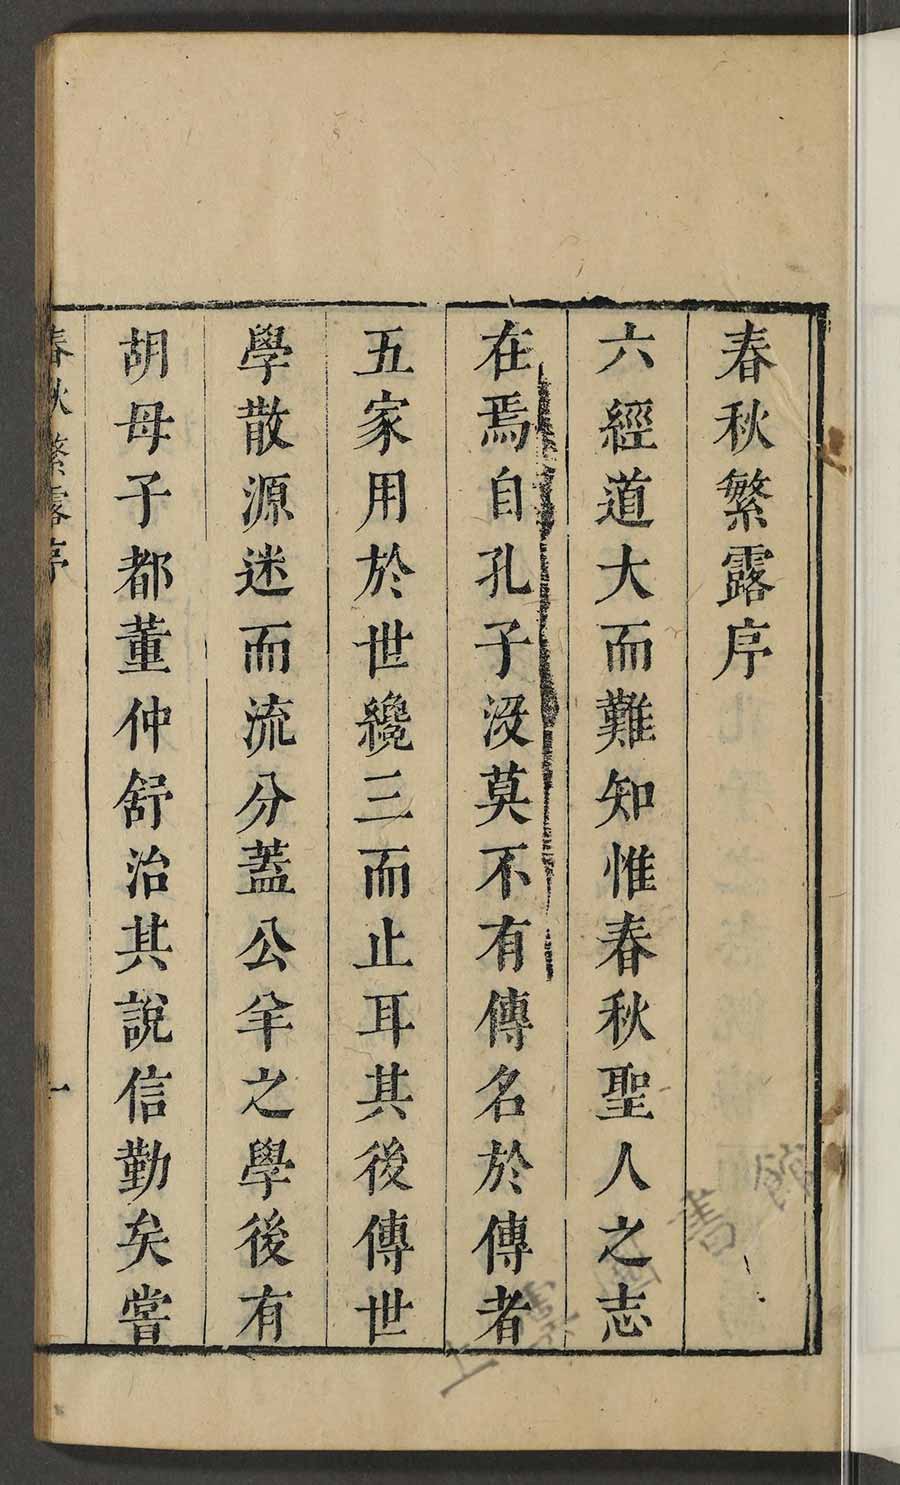 春秋繁露序
六經道大而難知惟春秋聖人之志
在焉自孔子沒莫不有傳名於傳者
五家用於世纔三而止耳其後傳世
學散源迷而流分蓋公羊之學後有
胡母子都董仲舒治其說信勤矣嘗
春秋繁露序 一